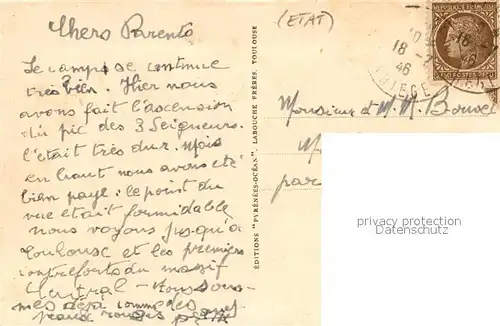 Chers Parents
Le camp se continue
très bien. Hier nous
avons fait l'ascension
du pic des 3 Seigneurs.
c'était très dur. Mais
en haut nous avons été
bien payé: le point du
vue était formidable
nous voyons jusqu'à
Toulouse et les premiers
contreforts du massif
Central - Nous som-
mes déjà comme des
peaux rouges
EDITIONS "PYRÉNÉES-OCÉAN", LABOUCHE FRÈRES, TOULOUSE
(ETAT)
18
46
ARIEGE
18 -
46
Monsieur et M. M. Bousel
par
privacy protection
Datenschutz